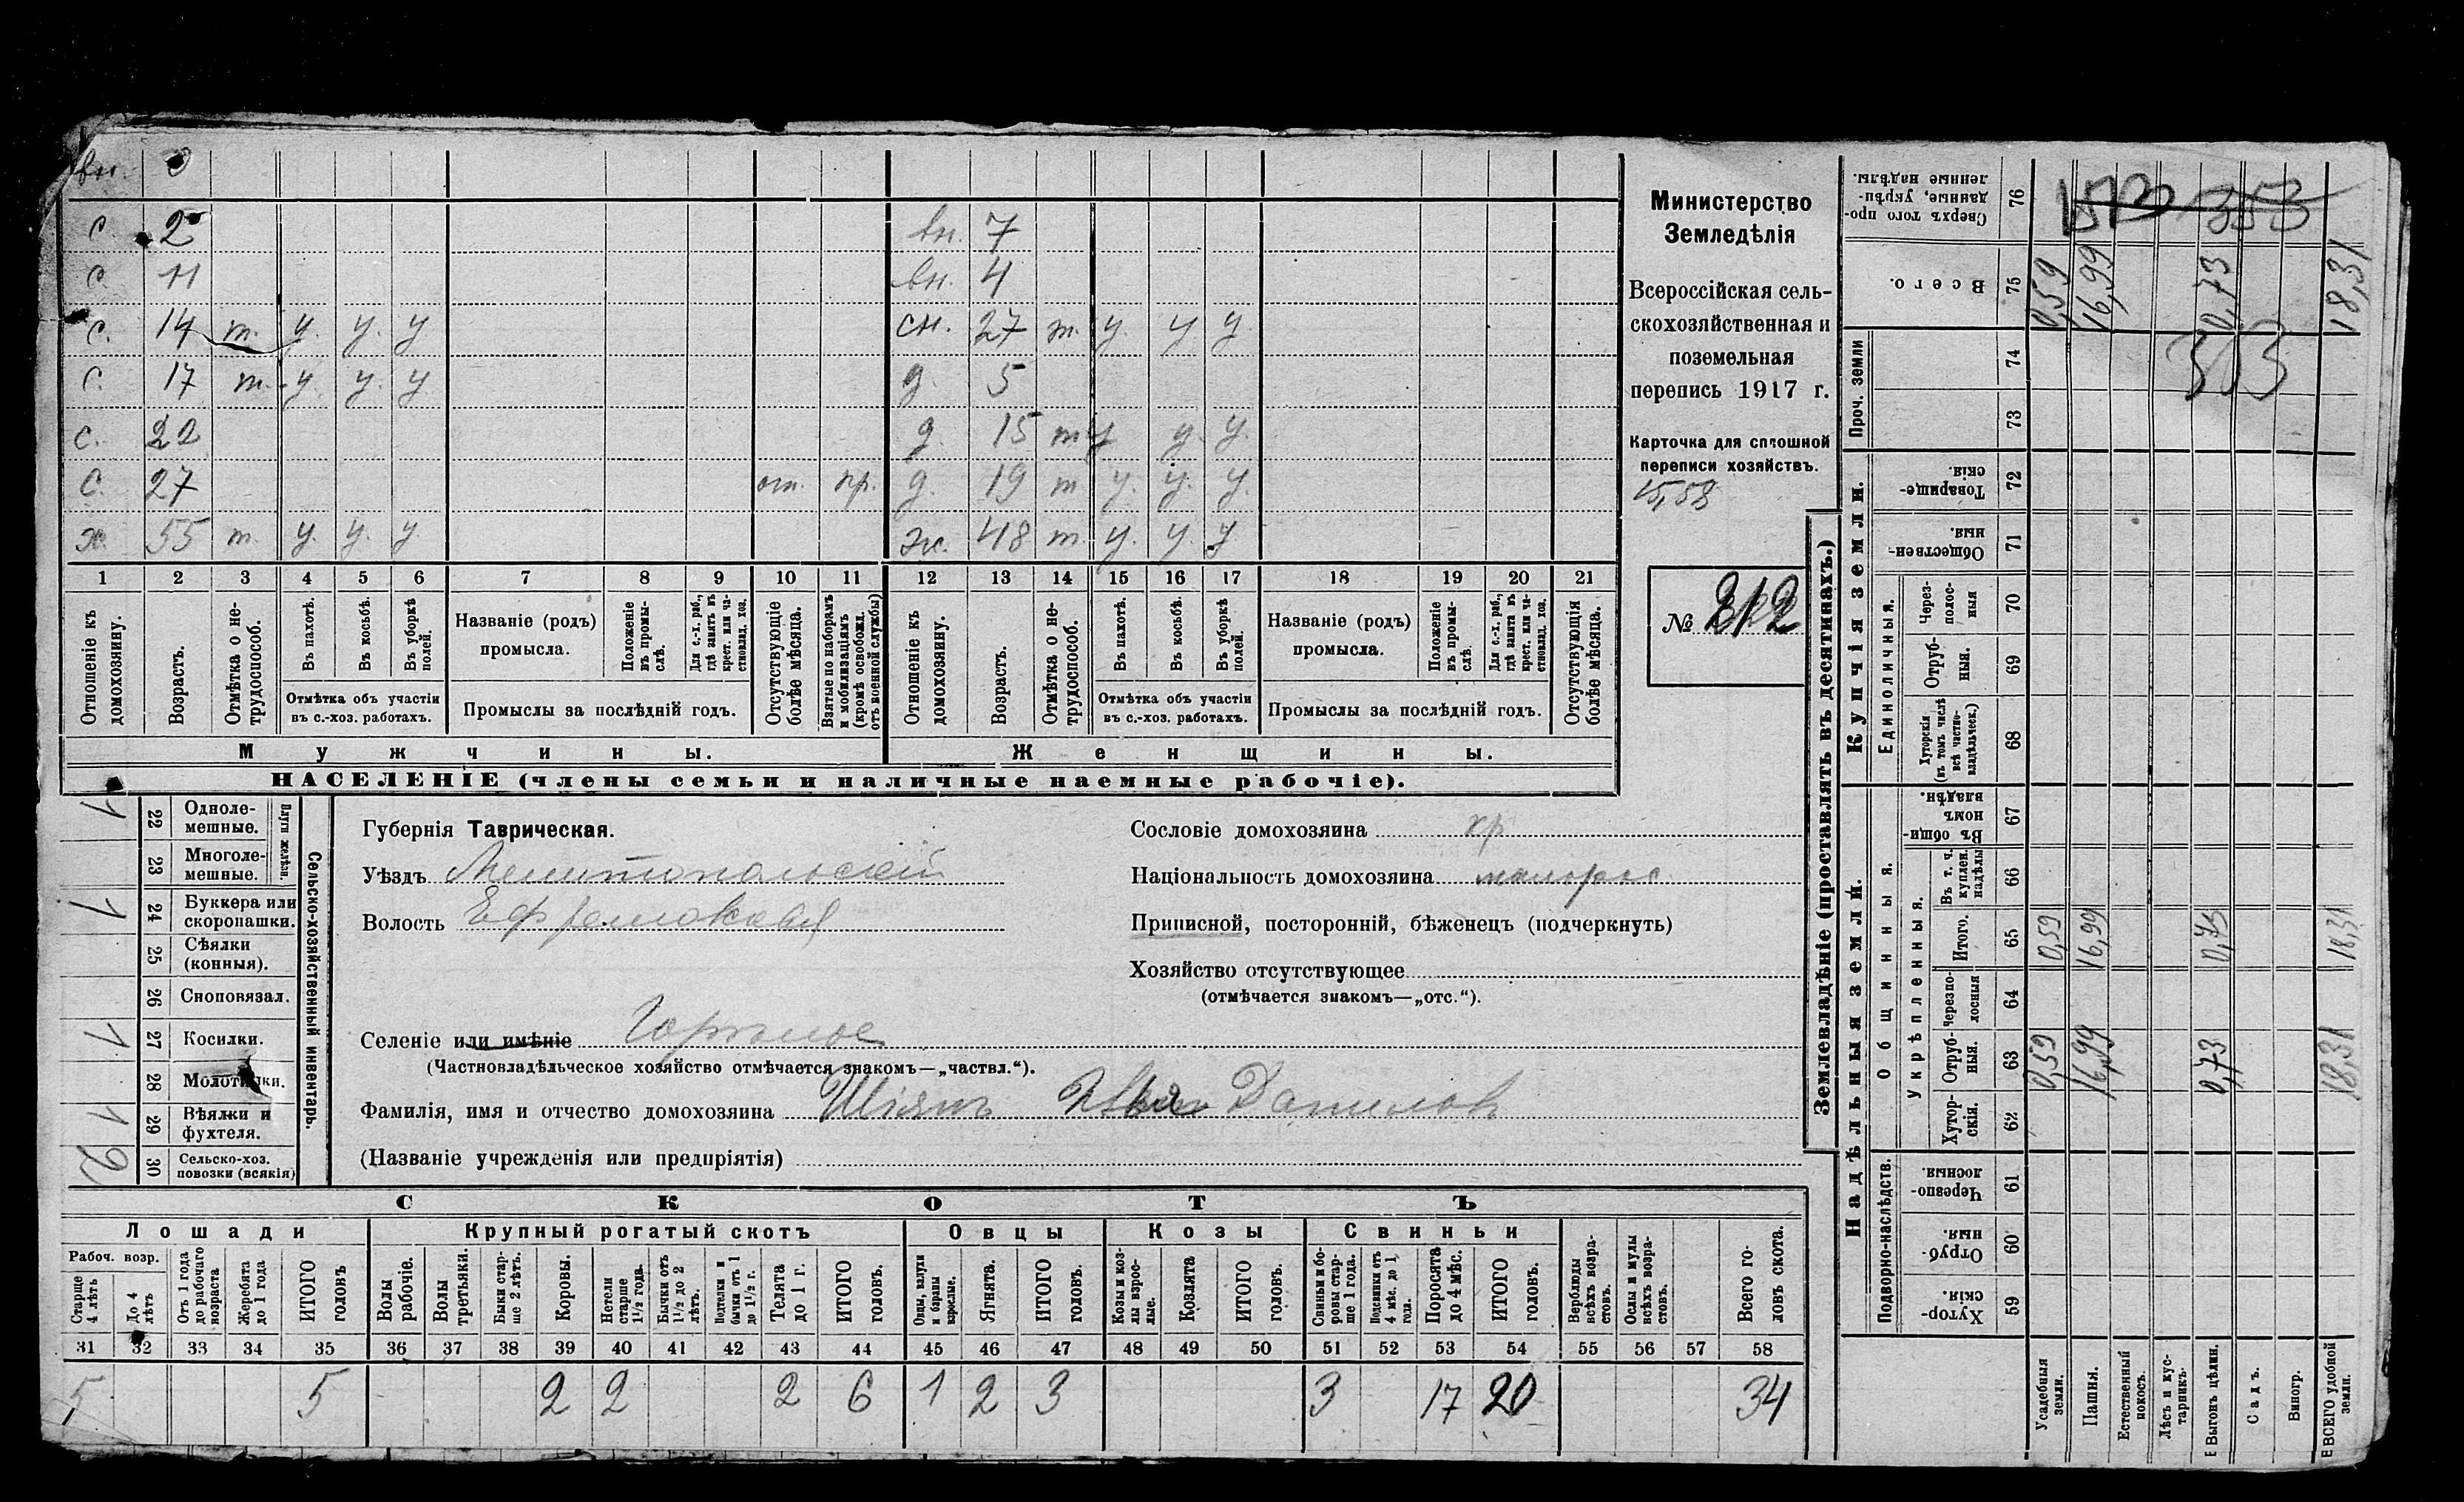 вн.
с. 2 вн. 7
с. 11 вн. 4
с. 14 т. у. у. у сн. 27 т. у. у у
с. 17 т. у. у. у д. 5
с. 22 д. 15 т у у. у.
с. 27 отп. пр. д. 19 т у. у. у.
х. 55 т. у. у. у. ж. 48 т. у. у. у
1 2 3 4 5 6 7 8 9 10 11 12 13 14 15 16 17 18 19 20 21
Отношеніе къ домохозяину.
Возрастъ.
Отмѣтка о нетрудоспособ.
Въ пахотѣ.
Въ косьбѣ.
Въ уборкѣ полей.
Отмѣтка объ участіи въ с.-хоз. работахъ.
Названіе (родъ) промысла.
Положеніе въ промыслѣ.
Для с.-х. раб., гдѣ занятъ въ крест. или частновлад. хоз.
Промыслы за послѣдній годъ.
Отсутствующіе болѣе мѣсяца.
Взятые по наборамъ и мобилизаціямъ (кромѣ освобожд. отъ военной службы)
Отношеніе къ домохозяину.
Возрастъ.
Отмѣтка о нетрудоспособ.
Въ пахотѣ.
Въ косьбѣ.
Въ уборкѣ полей.
Отмѣтка объ участіи въ с.-хоз. работахъ.
Названіе (родъ) промысла.
Положеніе въ промыслѣ.
Для с.-х. раб., гдѣ занята въ крест. или частновлад. хоз.
Промыслы за послѣдній годъ.
Отсутствующія болѣе мѣсяца.
Мужчины. Женщины.
НАСЕЛЕНІЕ (члены семьи и наличные наемные рабочіе).
Министерство
Земледѣлія
Всероссійская сель-
скохозяйственная и
поземельная
перепись 1917 г.
Карточка для сплошной
переписи хозяйствъ.
15,58
№ 212
Сельско-хозяйственный инвентарь.
Плуги желѣзн.
22 Однолемешные. 1
23 Многолемешные.
24 Буккера или скоропашки. 1
25 Сѣялки (конныя).
26 Сноповязал.
27 Косилки. 1
28 Молотилки.
29 Вѣялки и фухтеля. 1
30 Сельско-хоз. повозки (всякія) 2
Губернія Таврическая.
Уѣздъ Мелитопольскій
Волость Ефремовская
Селеніе или имѣніе Горѣлое
(Частновладѣльческое хозяйство отмѣчается знакомъ—„частвл.“).
Фамилія, имя и отчество домохозяина Шіянъ Данилов
(Названіе учрежденія или предпріятія)
Сословіе домохозяина кр
Національность домохозяина малорос
Приписной, посторонній, бѣженецъ (подчеркнуть)
Хозяйство отсутствующее
(отмѣчается знакомъ—„отс.“).
СКОТЪ
Лошади Крупный рогатый скотъ Овцы Козы Свиньи
Рабоч. возр.
Старше 4 лѣтъ
До 4 лѣтъ
Отъ 1 года до рабочаго возраста
Жеребята до 1 года
ИТОГО головъ
Волы рабочіе.
Волы третьяки.
Быки старше 2 лѣтъ.
Коровы.
Нетели старше 1½ года.
Бычки отъ 1½ до 2 лѣтъ.
Подтелки и бычки отъ 1 до 1½ г.
Телята до 1 г.
ИТОГО головъ.
Овцы, валухи и бараны взрослые.
Ягнята.
ИТОГО головъ.
Козы и козлы взрослые.
Козлята
ИТОГО головъ.
Свиньи и боровы старше 1 года.
Подсвинки отъ 4 мѣс. до 1 года.
Поросята до 4 мѣс.
ИТОГО головъ.
Верблюды всѣхъ возрастовъ.
Ослы и мулы всѣхъ возрастовъ.
Всего головъ скота.
31 32 33 34 35 36 37 38 39 40 41 42 43 44 45 46 47 48 49 50 51 52 53 54 55 56 57 58
5 5 2 2 2 6 1 2 3 3 17 20 34
Землевладѣніе (проставлять въ десятинахъ.)
Надѣльныя земли.
Купчія земли.
Проч. земли
Подворно-наслѣдств.
Общинныя.
Укрѣпленныя.
Единоличныя.
Сверхъ того проданные, укрѣпленные надѣлы. 76
Всего. 75 0,59 16,99 0,73 18,31
74
73
Товарищескія. 72
Общественныя. 71
Черезполосныя 70
Отрубныя. 69
Хуторскія (въ томъ числѣ всѣ частновладѣльческ.) 68
Въ общинномъ владѣн. 67
Въ т. ч. куплен. надѣлы 66
Итого. 65 0,59 16,99 0,73 18,31
Черезполосныя 64
Отрубныя. 63 0,59 16,99 0,73 18,31
Хуторскія. 62
Черезполосныя 61
Отрубныя. 60
Хуторскія. 59
353
Усадебныя земли.
Пашня.
Естественный покосъ.
Лѣсъ и кустарникъ
Выгонъ цѣлин.
Садъ.
Виногр.
ВСЕГО удобной земли.